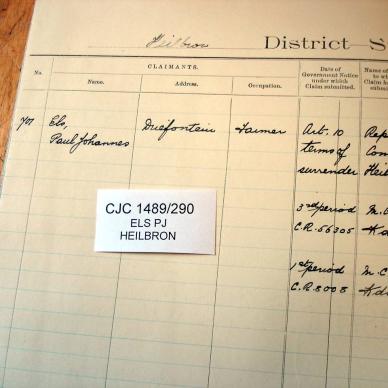 Heilbron District
CLAIMANTS.
No. Name. Address. Occupation. Date of Government Notice under which Claim submitted. Name of
to w
Claim
subm
707 Els, Paul Johannes Farmer Art. 10 terms of surrender
Com
Heil
3rd period
C.R. 56305
M. C
1st period
C.R. 8008
M. C
CJC 1489/290
ELS PJ
HEILBRON